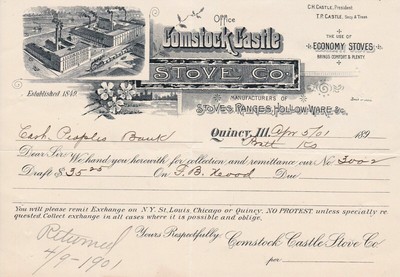 Office
Comstock Castle
STOVE CO.
Established 1849
MANUFACTURERS OF
STOVES, RANGES, HOLLOW WARE &c.
C.H. CASTLE, President
T.P. CASTLE, Secy & Treas
THE USE OF
ECONOMY STOVES
BRINGS COMFORT & PLENTY
Cash Peoples Bank
Quincy, Ill. Apr 5/01 189
Pratt Ks
Dear Sir: We hand you herewith for collection and remittance our No 3002
Draft $ 35 25 On J.B. Due
You will please remit Exchange on N.Y. St. Louis, Chicago or Quincy. NO PROTEST unless specially re-
quested Collect exchange in all cases where it is possible and oblige,
Yours Respectfully: Comstock Castle Stove Co
Returned
4/9-1901
per